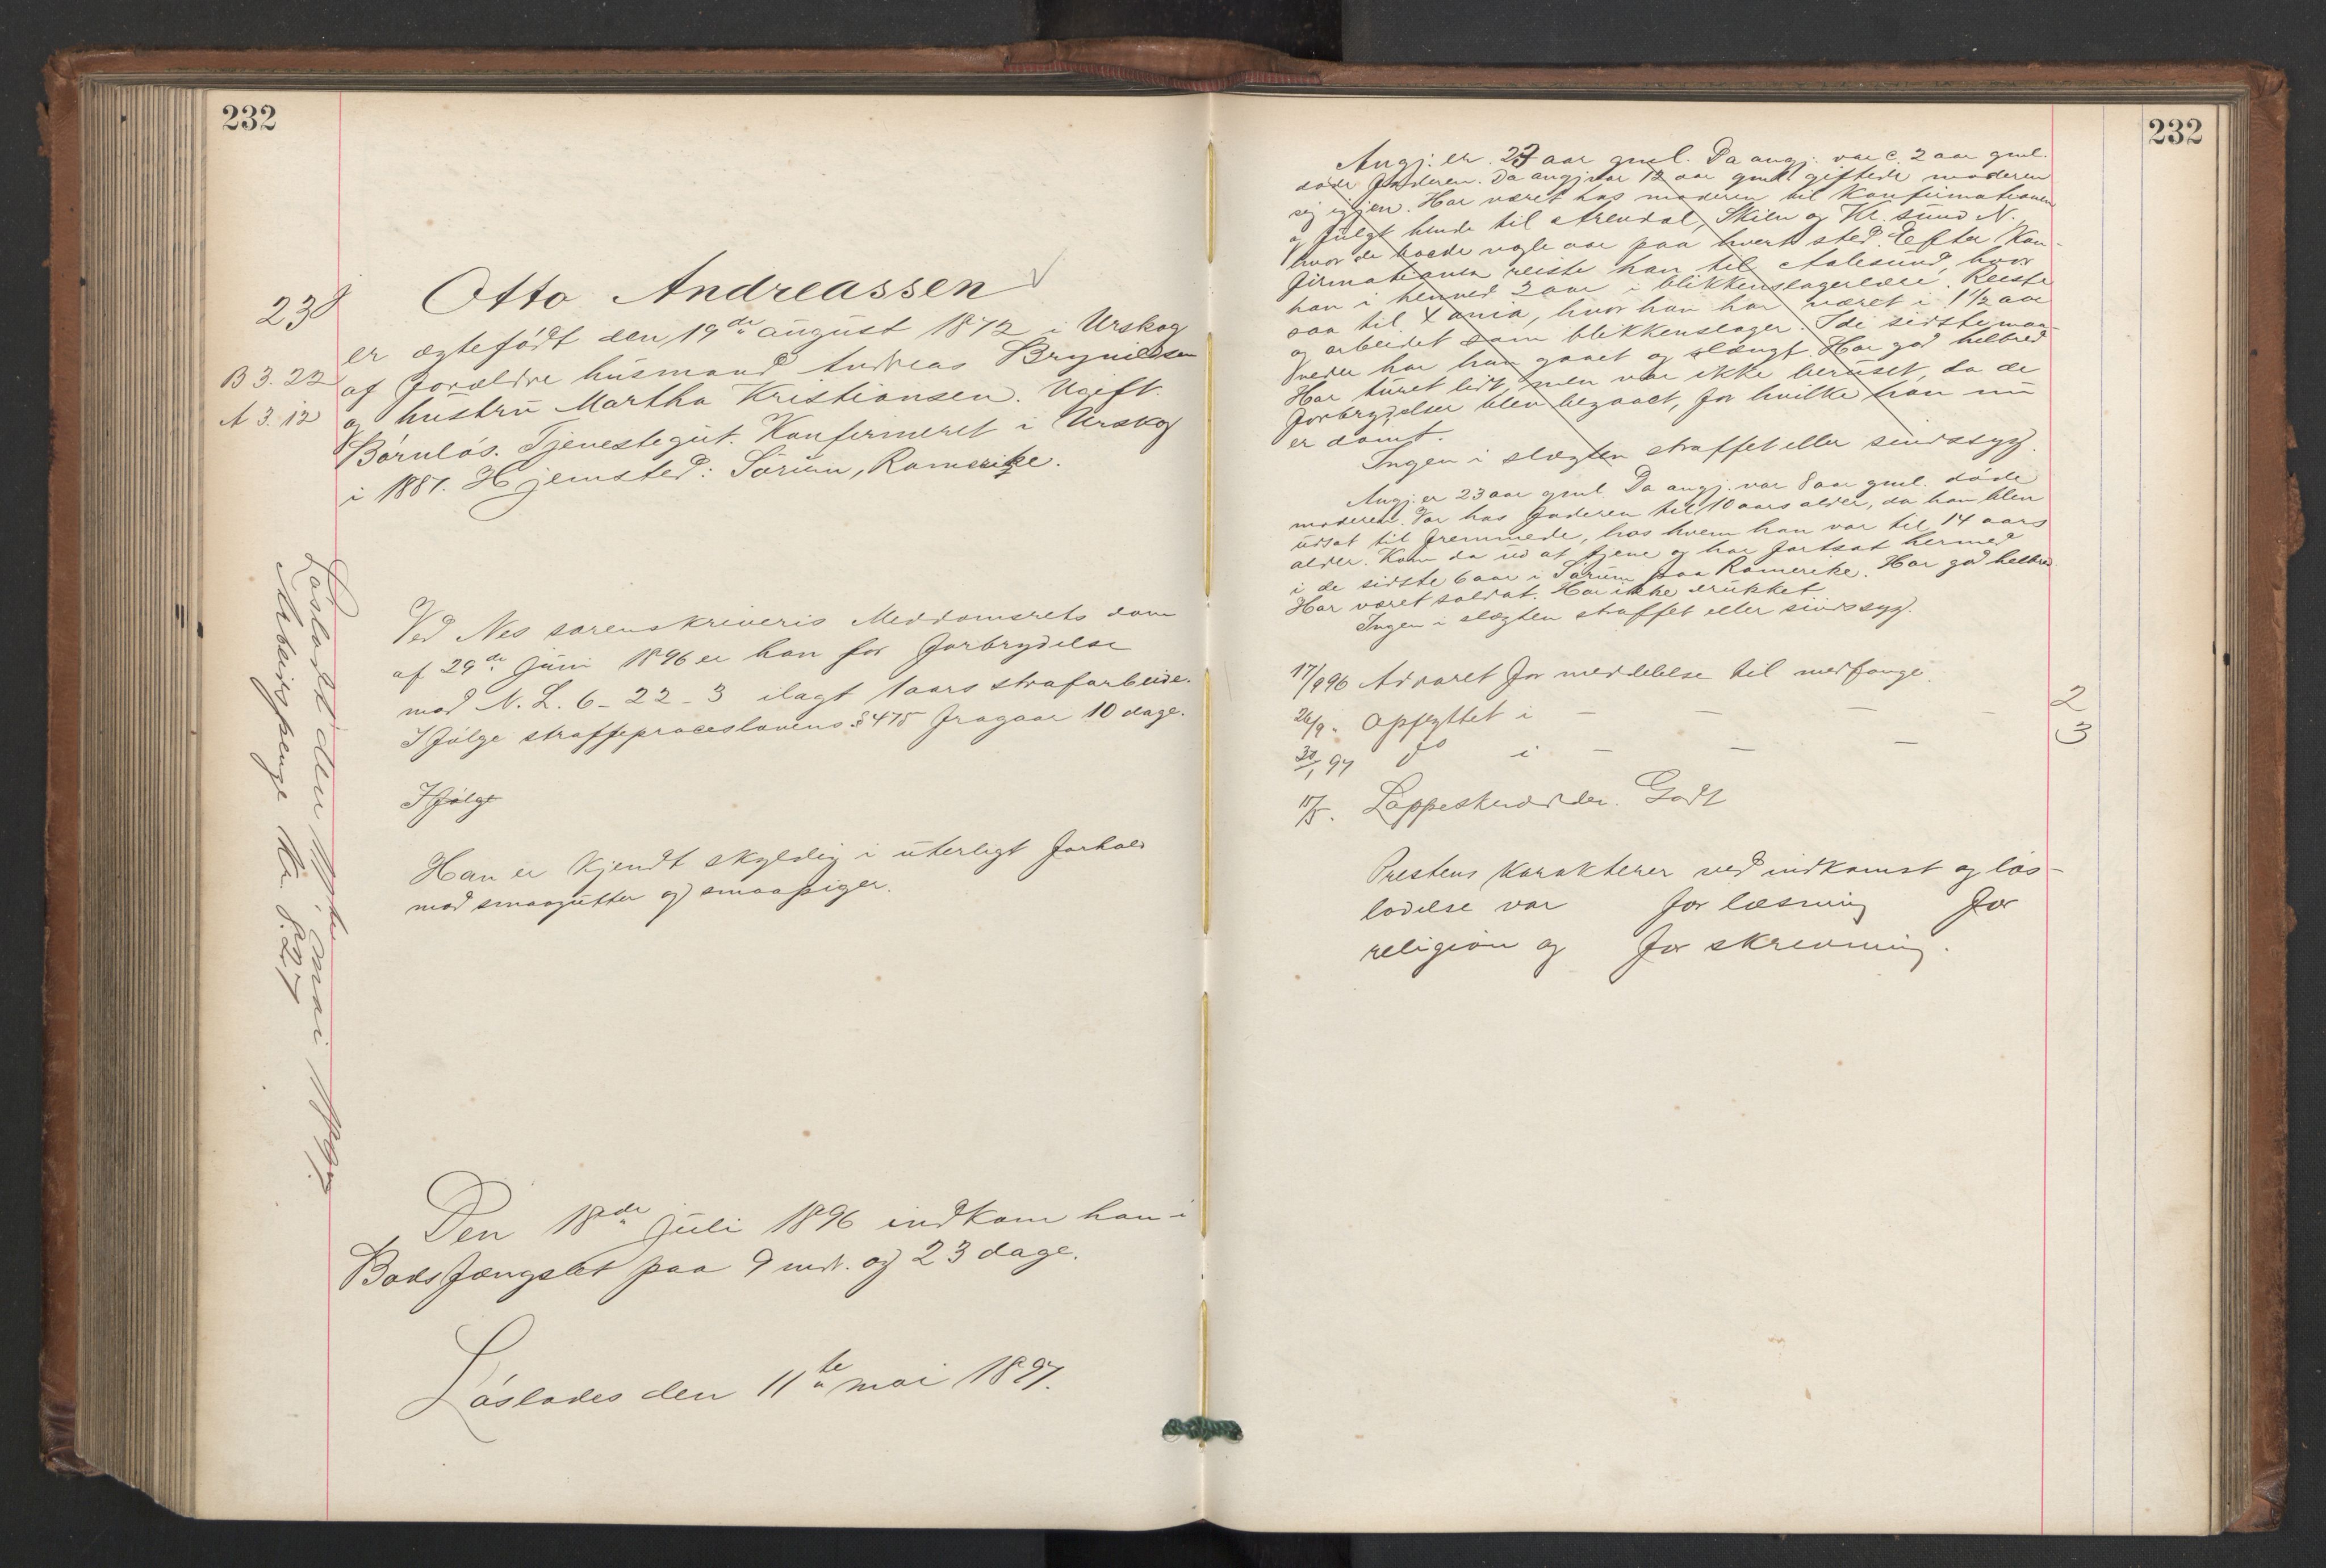 232
238
Otto Andreassen
B 3. 22
A 3. 12
er ægtefødt den 19de august 1872 i Urskog
af forældre husmand Andreas Brynildsen
og hustru Martha Kristiansen. Ugift.
Barnløs. Tjenestegut. Konfirmeret i Urskog
i 1887. Hjemsted: Sørum, Romerike.
Ved Nes sorenskriveris Meddomsrets dom
af 29de juni 1896 er han for forbrydelse
mod N. L. 6-22-3 ilagt 1 aars strafarbeide.
Ifølge straffeproceslovens § 475 fragaar 10 dage.
Ifølge
Han er kjendt skyldig i uterligt forhold
mod smaagutter og smaapiger.
Den 18de juli 1896 indkom han i
Bodsfængslet paa 9 mdr. og 23 dage.
Løslades den 11te mai 1897.
Løsladt den 11te mai 1897.
Arbeidspenge Kr. 8.27
232
Angj. er 23 aar gml. Da angj. var c. 2 aar gml.
døde faderen. Da angj var 12 aar gml giftede moderen
sig igjen. Har været hos moderen til Konfirmationen
og fulgt hende til Arendal, Skien og Kr. sund N.,
hvor de boede nogle aar paa hvert sted. Efter Kon-
firmationen reiste han til Aalesund, hvor
han i henved 2 aar i blikkenslagerlære. Reiste
saa til Xania, hvor han har været i 1 1/2 aar
og arbeidet som blikkenslager. I de sidste maa-
neder har han gaaet og slængt. Har god helbred
Har turet lidt, men var ikke beruset, da de
forbrydelser blev begaaet, for hvilke han nu
er dømt.
Ingen i slægten straffet eller sindssyg.
Angj. er 23 aar gml. Da angj. var 8 aar gml. døde
moderen. Var hos faderen til 10 aars alder, da han blev
udsat til fremmede, hos hvem han var til 14 aars
alder. Kom da ud at tjene og har fortsat hermed
i de sidste 6 aar i Sørum paa Romerike. Har god helbred.
Har været soldat. Har ikke drukket
Ingen i slægten straffet eller sindssyg.
17/9 96 Advaret for meddelelse til medfange.
26/9 " Opflyttet i — — — — 2
30/1 97 do i — — — 3
11/5. Lappeskrædder. Godt
Prestens Karakterer ved indkomst og løs-
ladelse var for læsning for
religion og for skrivning.